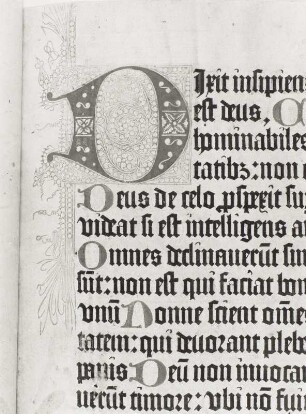 Dixit insipiens
est deus, C
hominabiles
tatibz: non
Deus de celo pspexit su
videat si est intelligens a
Omnes declinaverūt sim
sūt: non est qui faciat bon
vnū Nonne scient om̄e
tatem: qui devorant plebe
panis Deū non invocar
uerūt timore: vbi nō fui